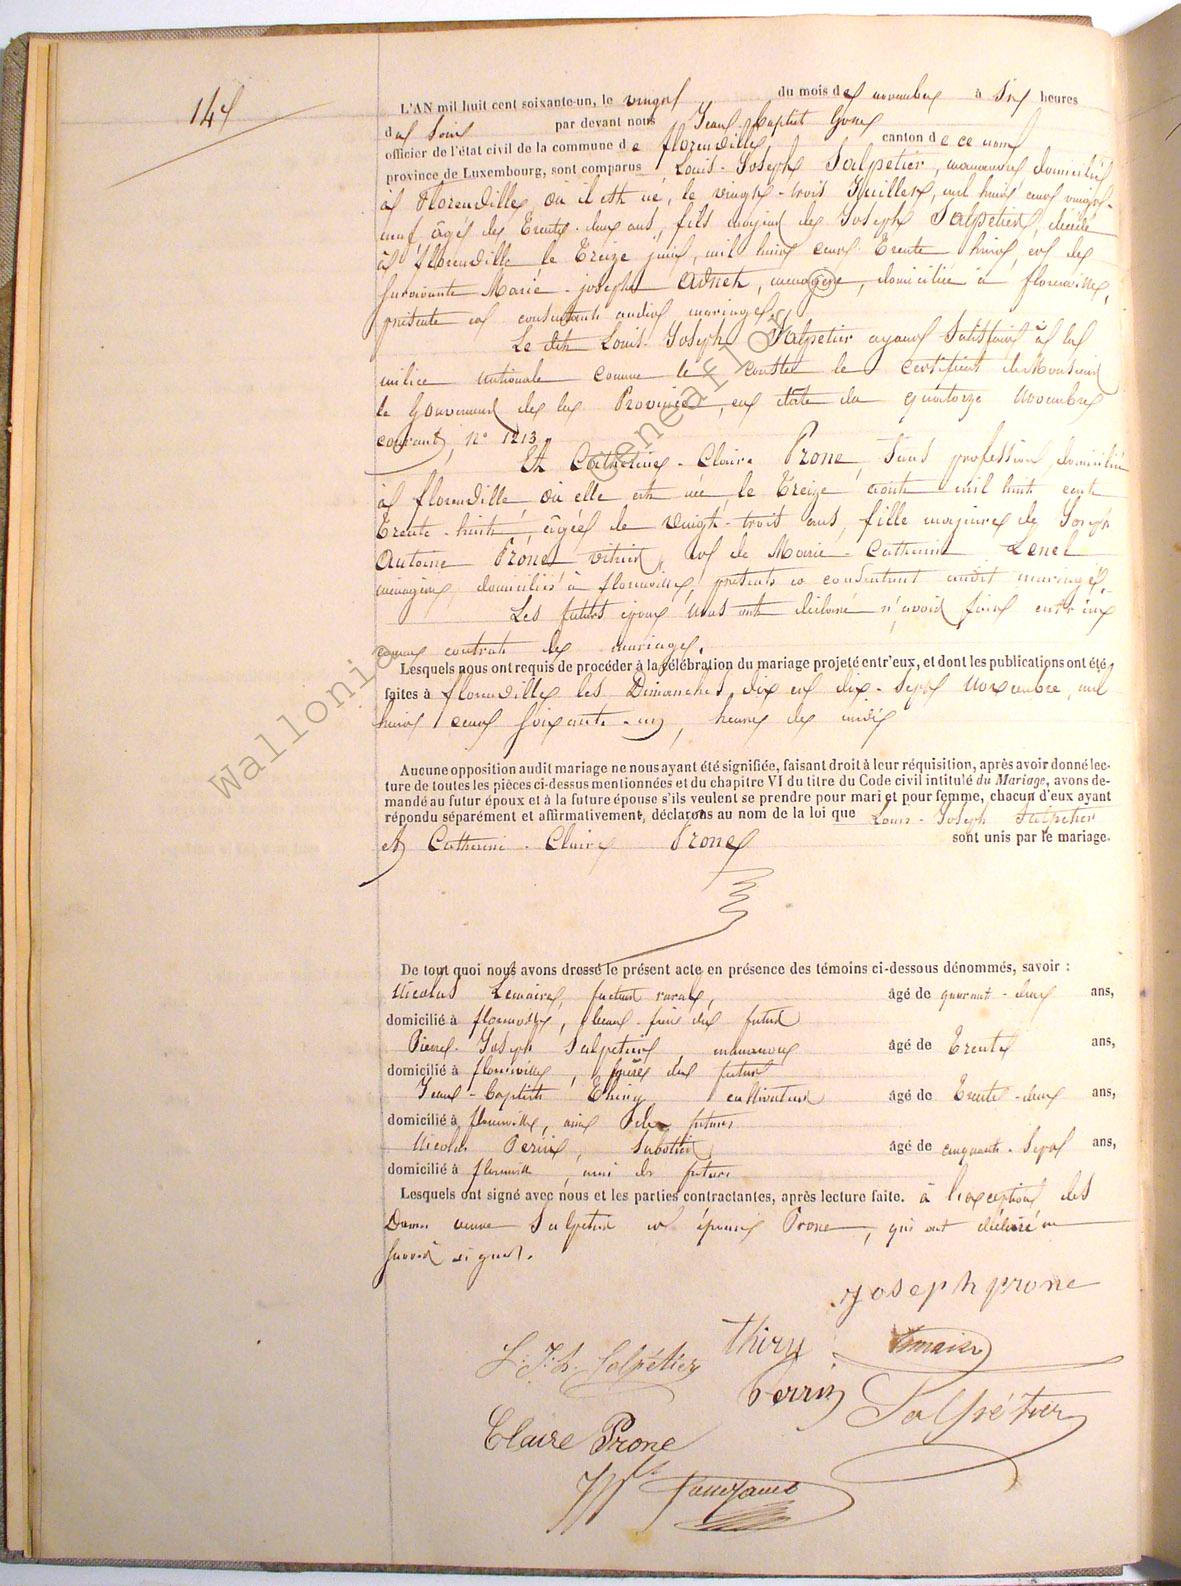 L'AN mil huit cent soixante-un, le vingt du mois de novembre à six heures
du soir par devant nous Jean-Baptist
officier de l'état civil de la commune de florenville, canton de ce nom
province de Luxembourg, sont comparus Louis-Joseph Salpétier, manœuvre domicilié
à Florenville où il est né, le vingt-trois Juillet, mil huit cent vingt-
neuf, âgé de Trente-deux ans, fils majeur de Joseph Salpétier, décédé
à florenville le Treize juin, mil huit cent Trente huit, et de
survivante Marie-joseph Adnet, ménagère, domiciliée à florenville,
présente et consentante audit mariage.
Le dit Louis-Joseph Salpetier ayant satisfait à la
milice nationale comme le constte le certificat de Monsieur
le Gouverneur de la Province, en date du quatorze Novembre
courant, n° 1213.
Et Catherine-Claire Prone, sans profession, domiciliée
à florenville où elle est née le Treize août mil huit cent
Trente-huit, âgée de vingt-trois ans, fille majeure de Joseph
Antoine Prone, vitrier, et de Marie-Catherine Lenel
ménagère, domiciliés à florenville, présents et consentant audit mariage.
Les futurs époux nous ont déclaré n'avoir fait entr'eux
aucun contrat de mariage.
Lesquels nous ont requis de procéder à la célébration du mariage projeté entr'eux, et dont les publications ont été
faites à florenville les Dimanches dix et dix-sept Novembre, mil
huit cent soixante-un, heure de midi
Aucune opposition audit mariage ne nous ayant été signifiée, faisant droit à leur réquisition, après avoir donné lec-
ture de toutes les pièces ci-dessus mentionnées et du chapitre VI du titre du Code civil intitulé du Mariage, avons de-
mandé au futur époux et à la future épouse s'ils veulent se prendre pour mari et pour femme, chacun d'eux ayant
répondu séparément et affirmativement, déclarons au nom de la loi que Louis-Joseph Salpetier
et Catherine-Claire Prone sont unis par le mariage.
De tout quoi nous avons dressé le présent acte en présence des témoins ci-dessous dénommés, savoir :
Nicolas Lemaire, facteur rural, âgé de quarant-deux ans,
domicilié à florenville, beau-frère du futur
Pierre-Joseph Salpetier manœuvre âgé de Trente ans,
domicilié à florenville, frère du futur
Jean-Baptiste Thiry cultivateur âgé de Trente-deux ans,
domicilié à florenville, ami des futurs
Nicolas Perrin, sabotier âgé de cinquante-sept ans,
domicilié à florenville, ami des futurs
Lesquels ont signé avec nous et les parties contractantes, après lecture faite. à l'exception des
Dames veuve Salpetier et épouse Prone, qui ont déclaré ne
savoir signer.
joseph prone
Thiry Lemaire
L. Jh. Salpétier
Perrin Salpétier
Claire Prone
144
Wallonie © Geneaflor